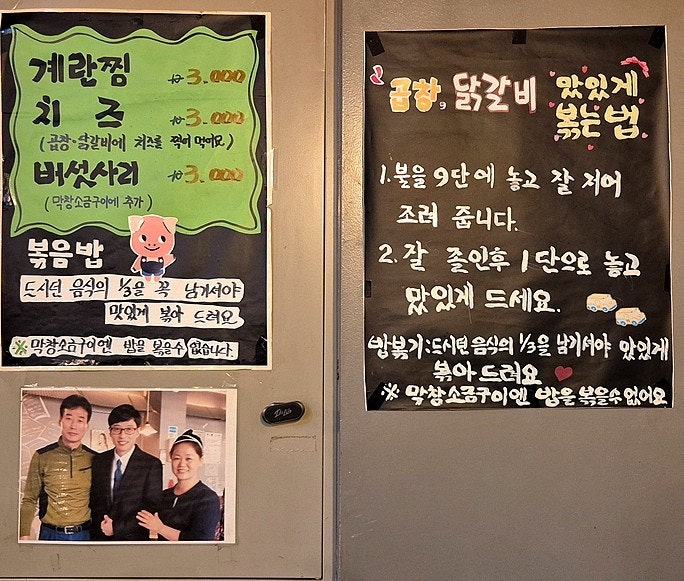 계란찜 ₩3.000
치즈 ₩3.000
(곱창·닭갈비에 치즈를 찍어 먹어요)
버섯사리 ₩3.000
(막창소금구이에 추가)
볶음밥
드시던 음식의 1/3을 꼭 남기셔야
맛있게 볶아 드려요
※ 막창소금구이엔 밥을 볶을수 없습니다.
곱창, 닭갈비 맛있게
볶는법
1. 불을 9단에 놓고 잘 저어
조려 줍니다.
2. 잘 졸인후 1단으로 놓고
맛있게 드세요.
밥볶기: 드시던 음식의 1/3을 남기셔야 맛있게
볶아 드려요
※ 막창소금구이엔 밥을 볶을수 없어요